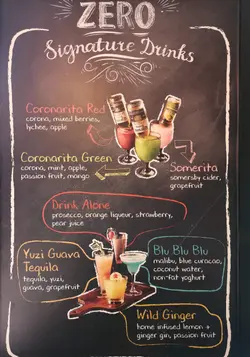 ZERO
Signature Drinks
Coronarita Red
corona, mixed berries,
lychee, apple
Coronarita Green
corona, mint, apple,
passion fruit, mango
Somerita
somersby cider,
grapefruit
Drink Alone
prosecco, orange liqueur, strawberry,
pear juice
Yuzi Guava
Tequila
tequila, yuzi,
guava, grapefruit
Blu Blu Blu
malibu, blue curacao,
coconut water,
non-fat yoghurt
Wild Ginger
home infused lemon +
ginger gin, passion fruit